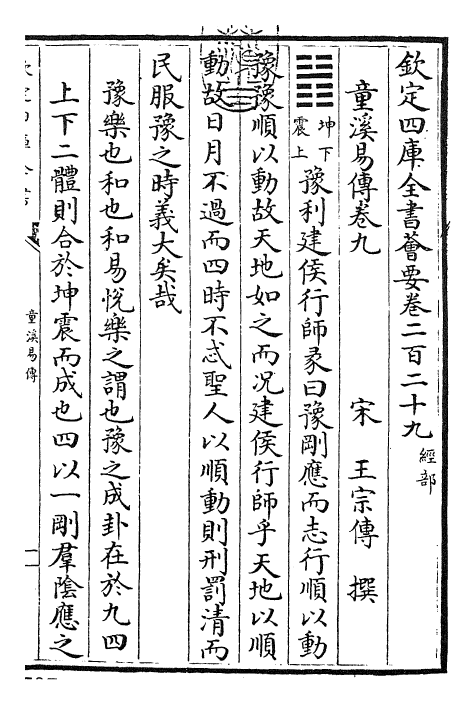 欽定四庫全書薈要卷二百二十九 經部
童溪易傳卷九
宋 王宗傳 撰
坤下
震上
豫利建侯行師彖曰豫剛應而志行順以動
豫豫順以動故天地如之而况建侯行師乎天地以順
動故日月不過而四時不忒聖人以順動則刑罰清而
民服豫之時義大矣哉
豫樂也和也和易悅樂之謂也豫之成卦在於九四
上下二體則合於坤震而成也四以一剛羣陰應之
童溪易傳
一